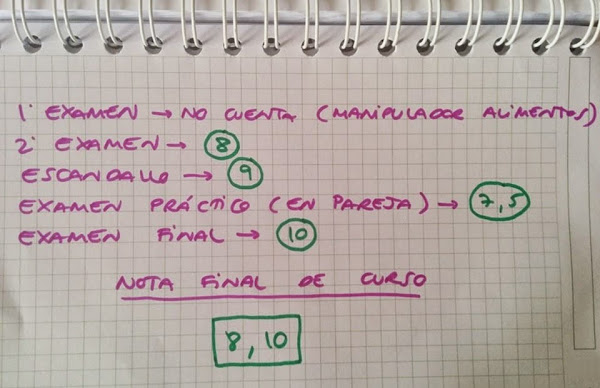 1º EXAMEN → NO CUENTA (MANIPULADOR ALIMENTOS)
2º EXAMEN → 8
ESCANDALLO → 9
EXAMEN PRÁCTICO (EN PAREJA) → 7,5
EXAMEN FINAL → 10
NOTA FINAL DE CURSO
8,10